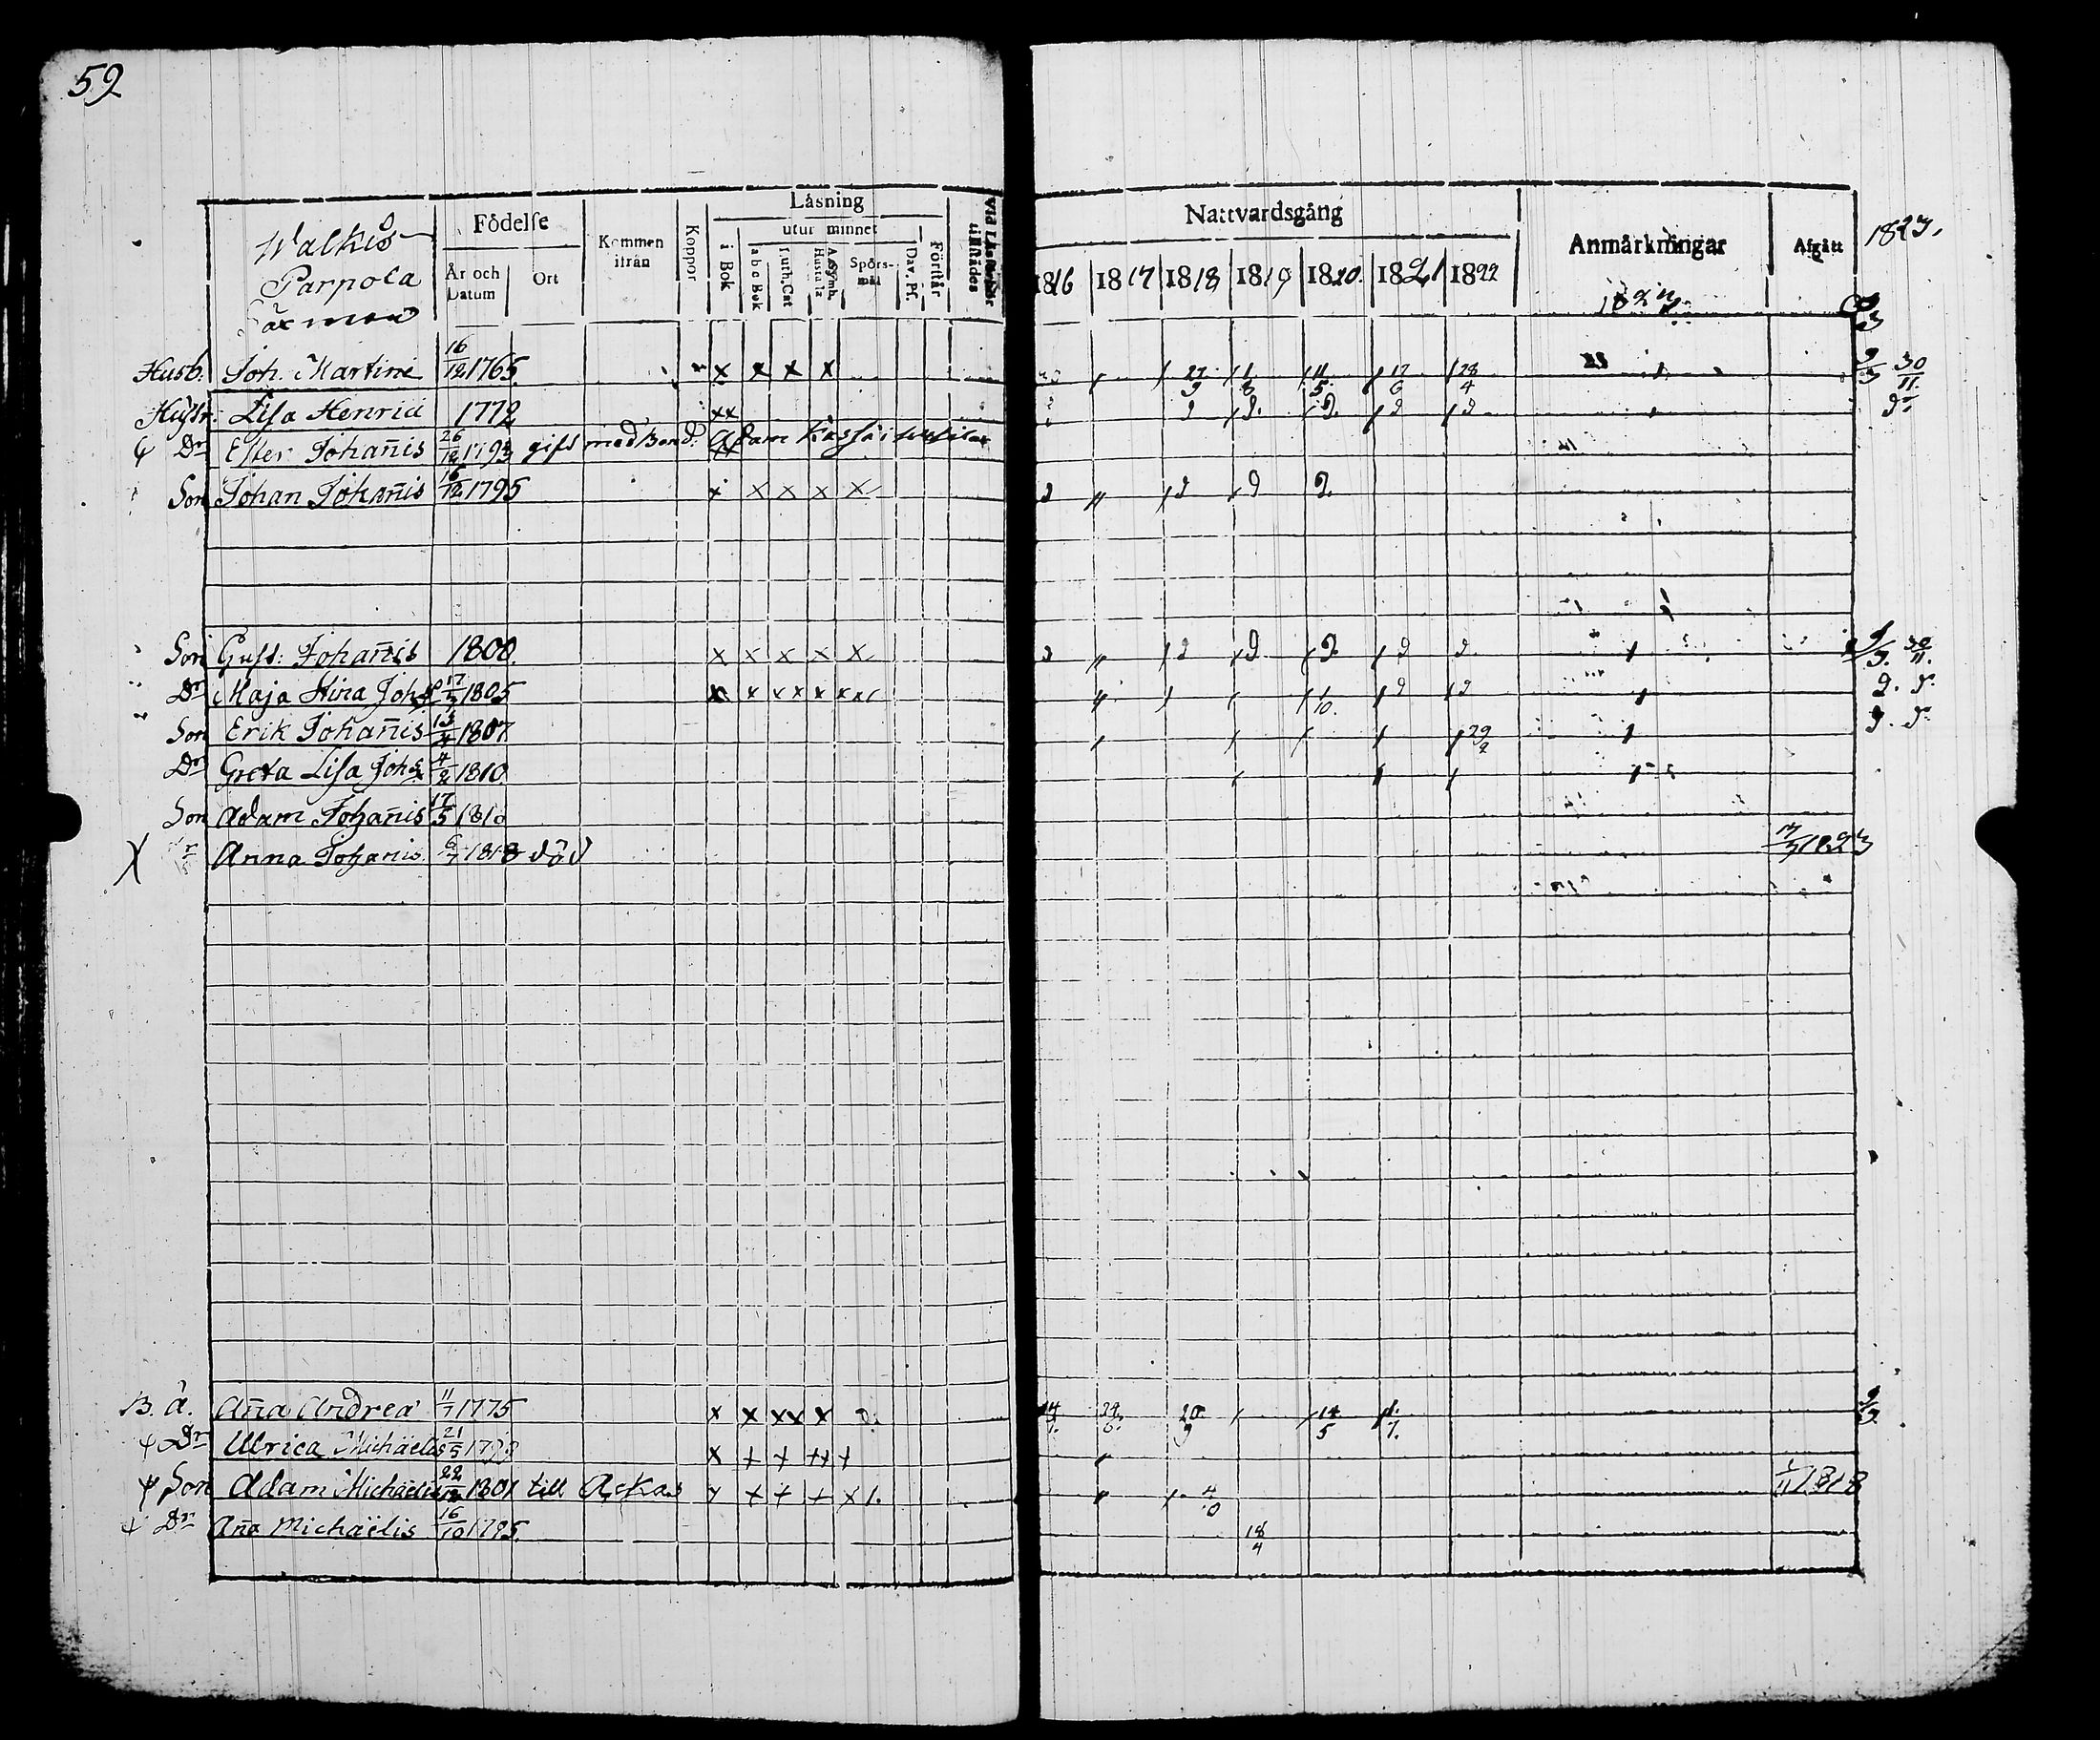 59
Walkis
Parpola
Födelse
År och Datum
Ort
Kommen ifrån
Koppor
Läsning
utur minnet
i Bok
abc Bok
Luth. Cat
A. Symb. Hustafla
Spörsmål
Dav. Ps.
Förstår
Vid Läsförhör tillstädes
Nattvardsgång
1816 1817 1818 1819 1820. 1821 1822
Anmärkningar
Afgått
1823.
Husb. Joh. Martini 16/12 1765. x x x x 22/9 1/8 11/5. 17/6 28/4 30/11.
Hustr. Lisa Henrici 1772 xx d d. d. d d dº
Dr Ester Johan̄is 26/12 1793 gift med Bond. Adam
Son Johan Johan̄is 16/12 1795 x x x x x d d d d.
Son Gust: Johan̄is 1800. x x x x x d d d d. d d 30/11.
Dr Maja Stina Joh 17/7 1805 x x x x x x x 1/10. d d d. dº
Son Erik Johan̄is 13/4 1807 29/4 d. dº
Dr Greta Lisa Joh 4/2 1810.
Son Adam Johan̄is 17/5 181
X Anna Johanis 6/7 1818 död 1823
B. ä. An̄a Andreæ 11/7 1775 x x xx x 20/9 14/5
Dr Ulrica Michaëlis 21/5 x + + ++ +
Son Adam Michaëlis 22/12 1801 till Askas + + + x 4/10 1/11 1818
Dr An̄a Michaëlis 16/10 1795. 18/4